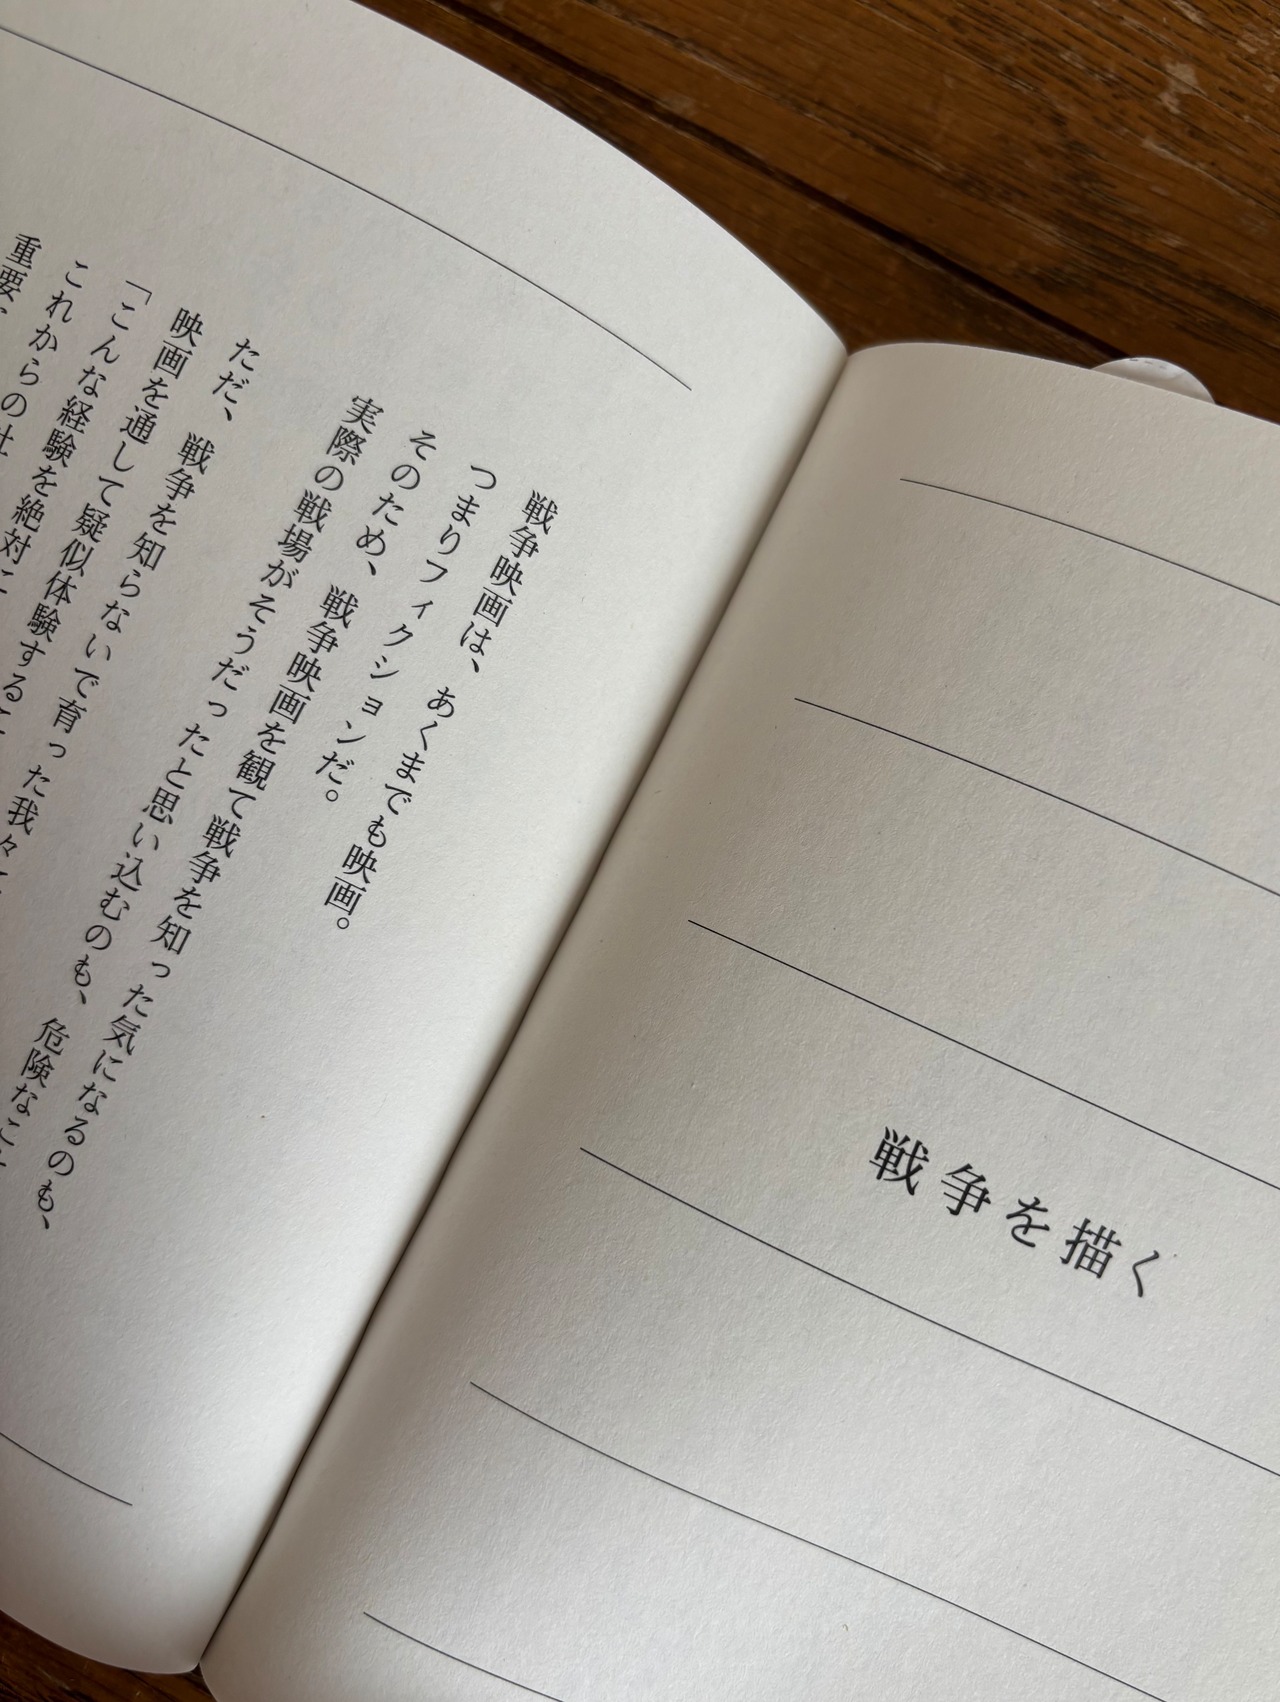 戦争を描く
戦争映画は、あくまでも映画。
つまりフィクションだ。
そのため、戦争映画を観て戦争を知った気になるのも、
実際の戦場がそうだったと思い込むのも、危険なこ
ただ、戦争を知らないで育った我々
映画を通して疑似体験する
「こんな経験を絶対
これからの
重要